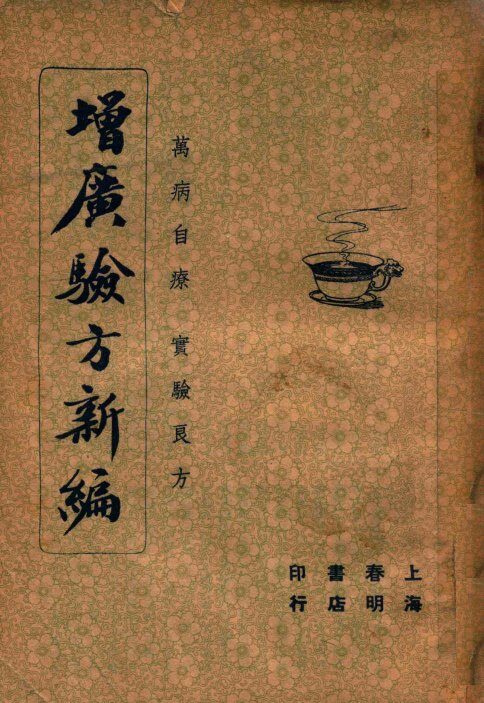 增廣驗方新編
萬病自療 實驗良方
上海
春明
書店
印行